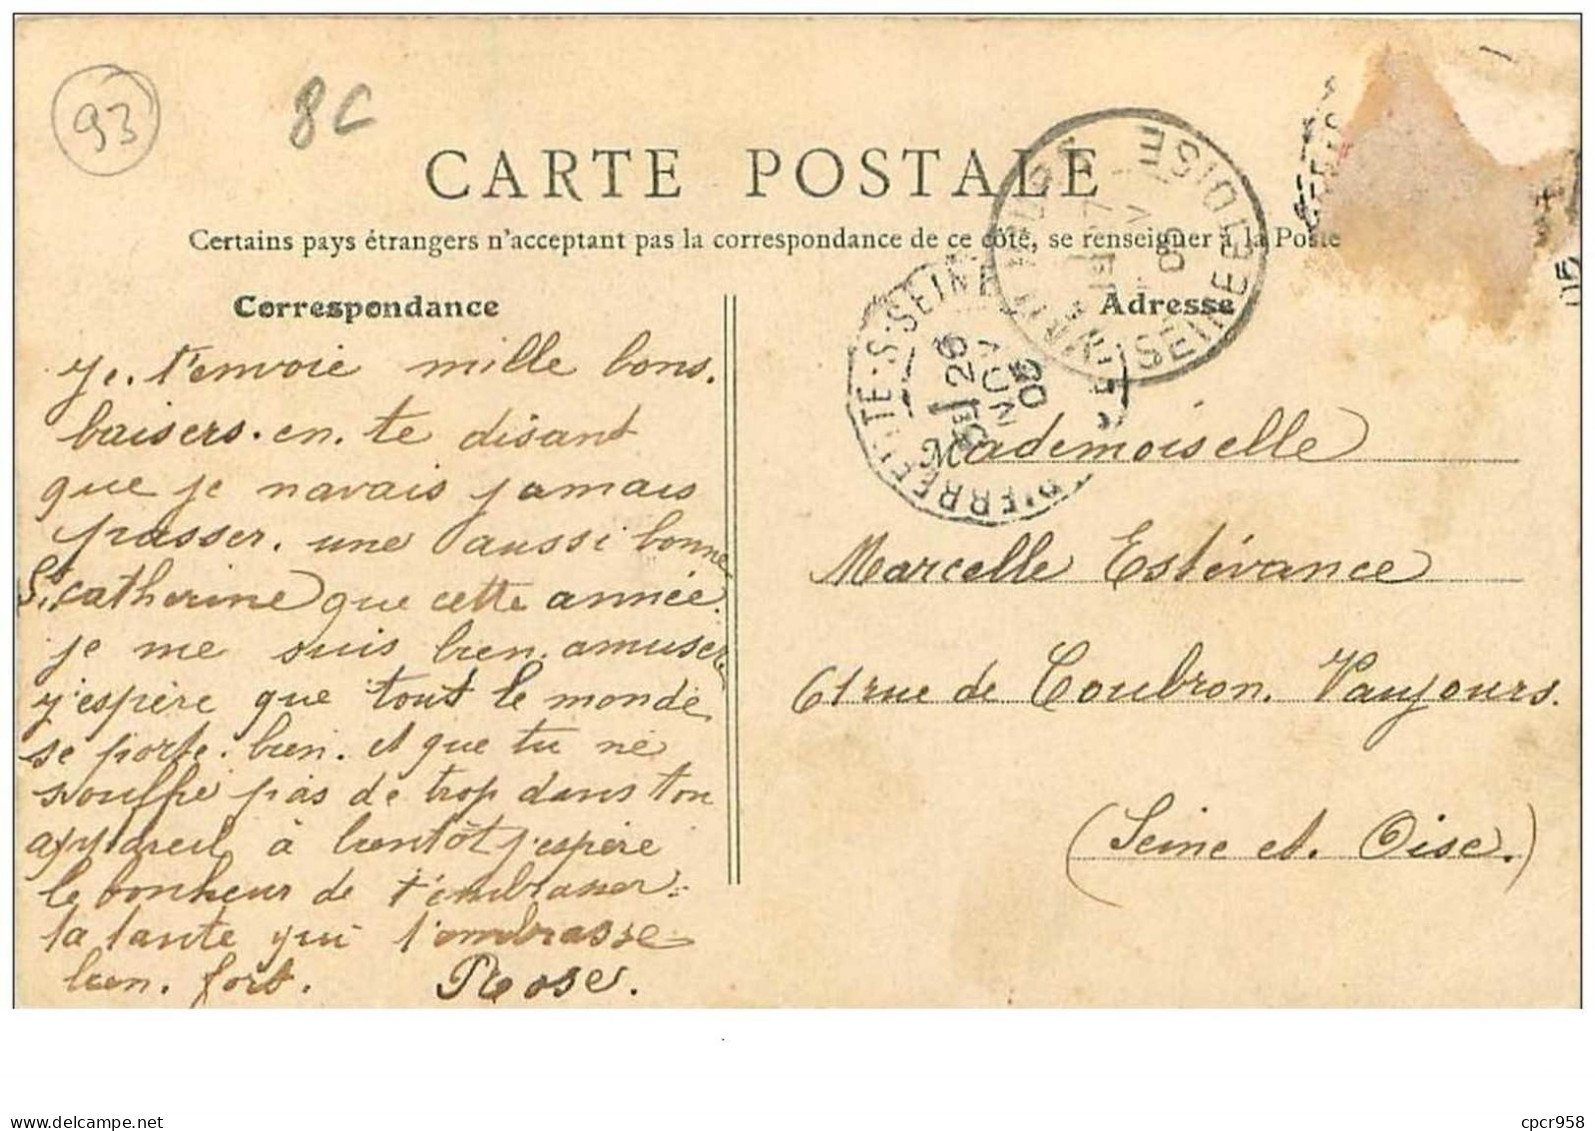 93
8C
CARTE POSTALE
Certains pays étrangers n'acceptant pas la correspondance de ce côté, se renseigner à la Poste
Correspondance
Adresse
je. t'envoie mille bons.
baisers. en. te disant
que je navais jamais
passer. une aussi bonne
St catherine que cette année.
je me suis bien. amuser
j'espère que tout le monde
se porte. bien. et que tu ne
souffre pas de trop dans ton
appareil à bientôt j'espère
le bonheur de t'embrasser.
ta tante qui t'embrasse
bien. fort. Rose.
PIERREFITTE-S-SEINE
26
NOV
05
SEINE ET OISE
05
Mademoiselle
Marcelle Estévance
61 rue de Coubron. Vaujours.
(Seine et. Oise.)
05
delcampe.net
cpcr958